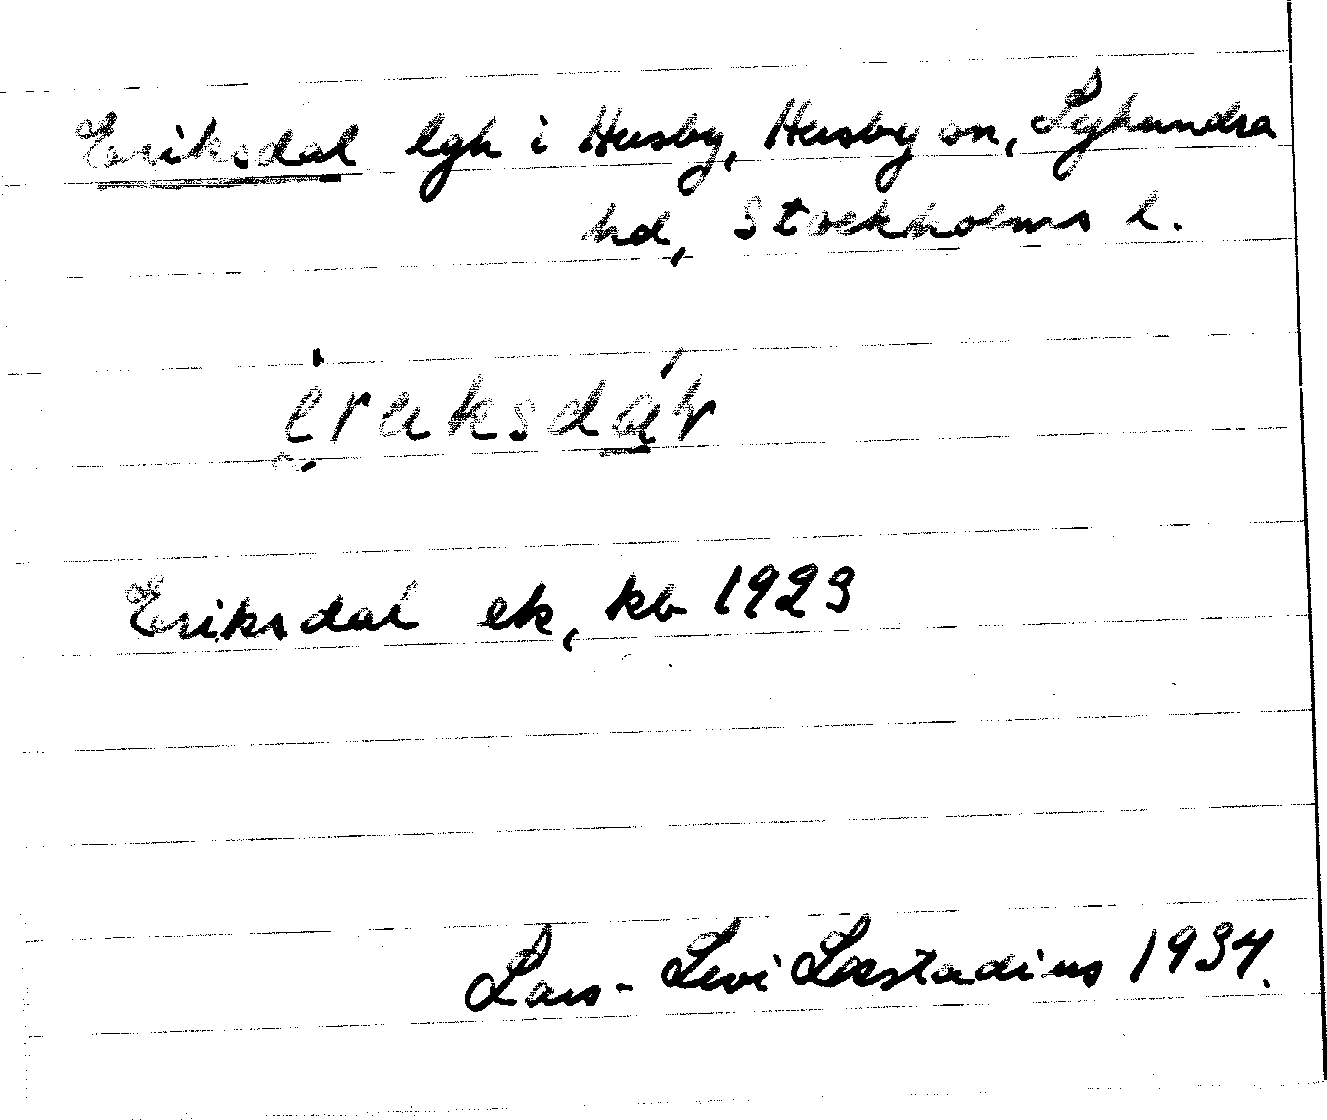 Eriksdal lgh i Husby, Husby sn, Lyhundra
hd, Stockholms l.
Eriksdal ek, kb 1923
Lars-Levi Læstadius 1934.